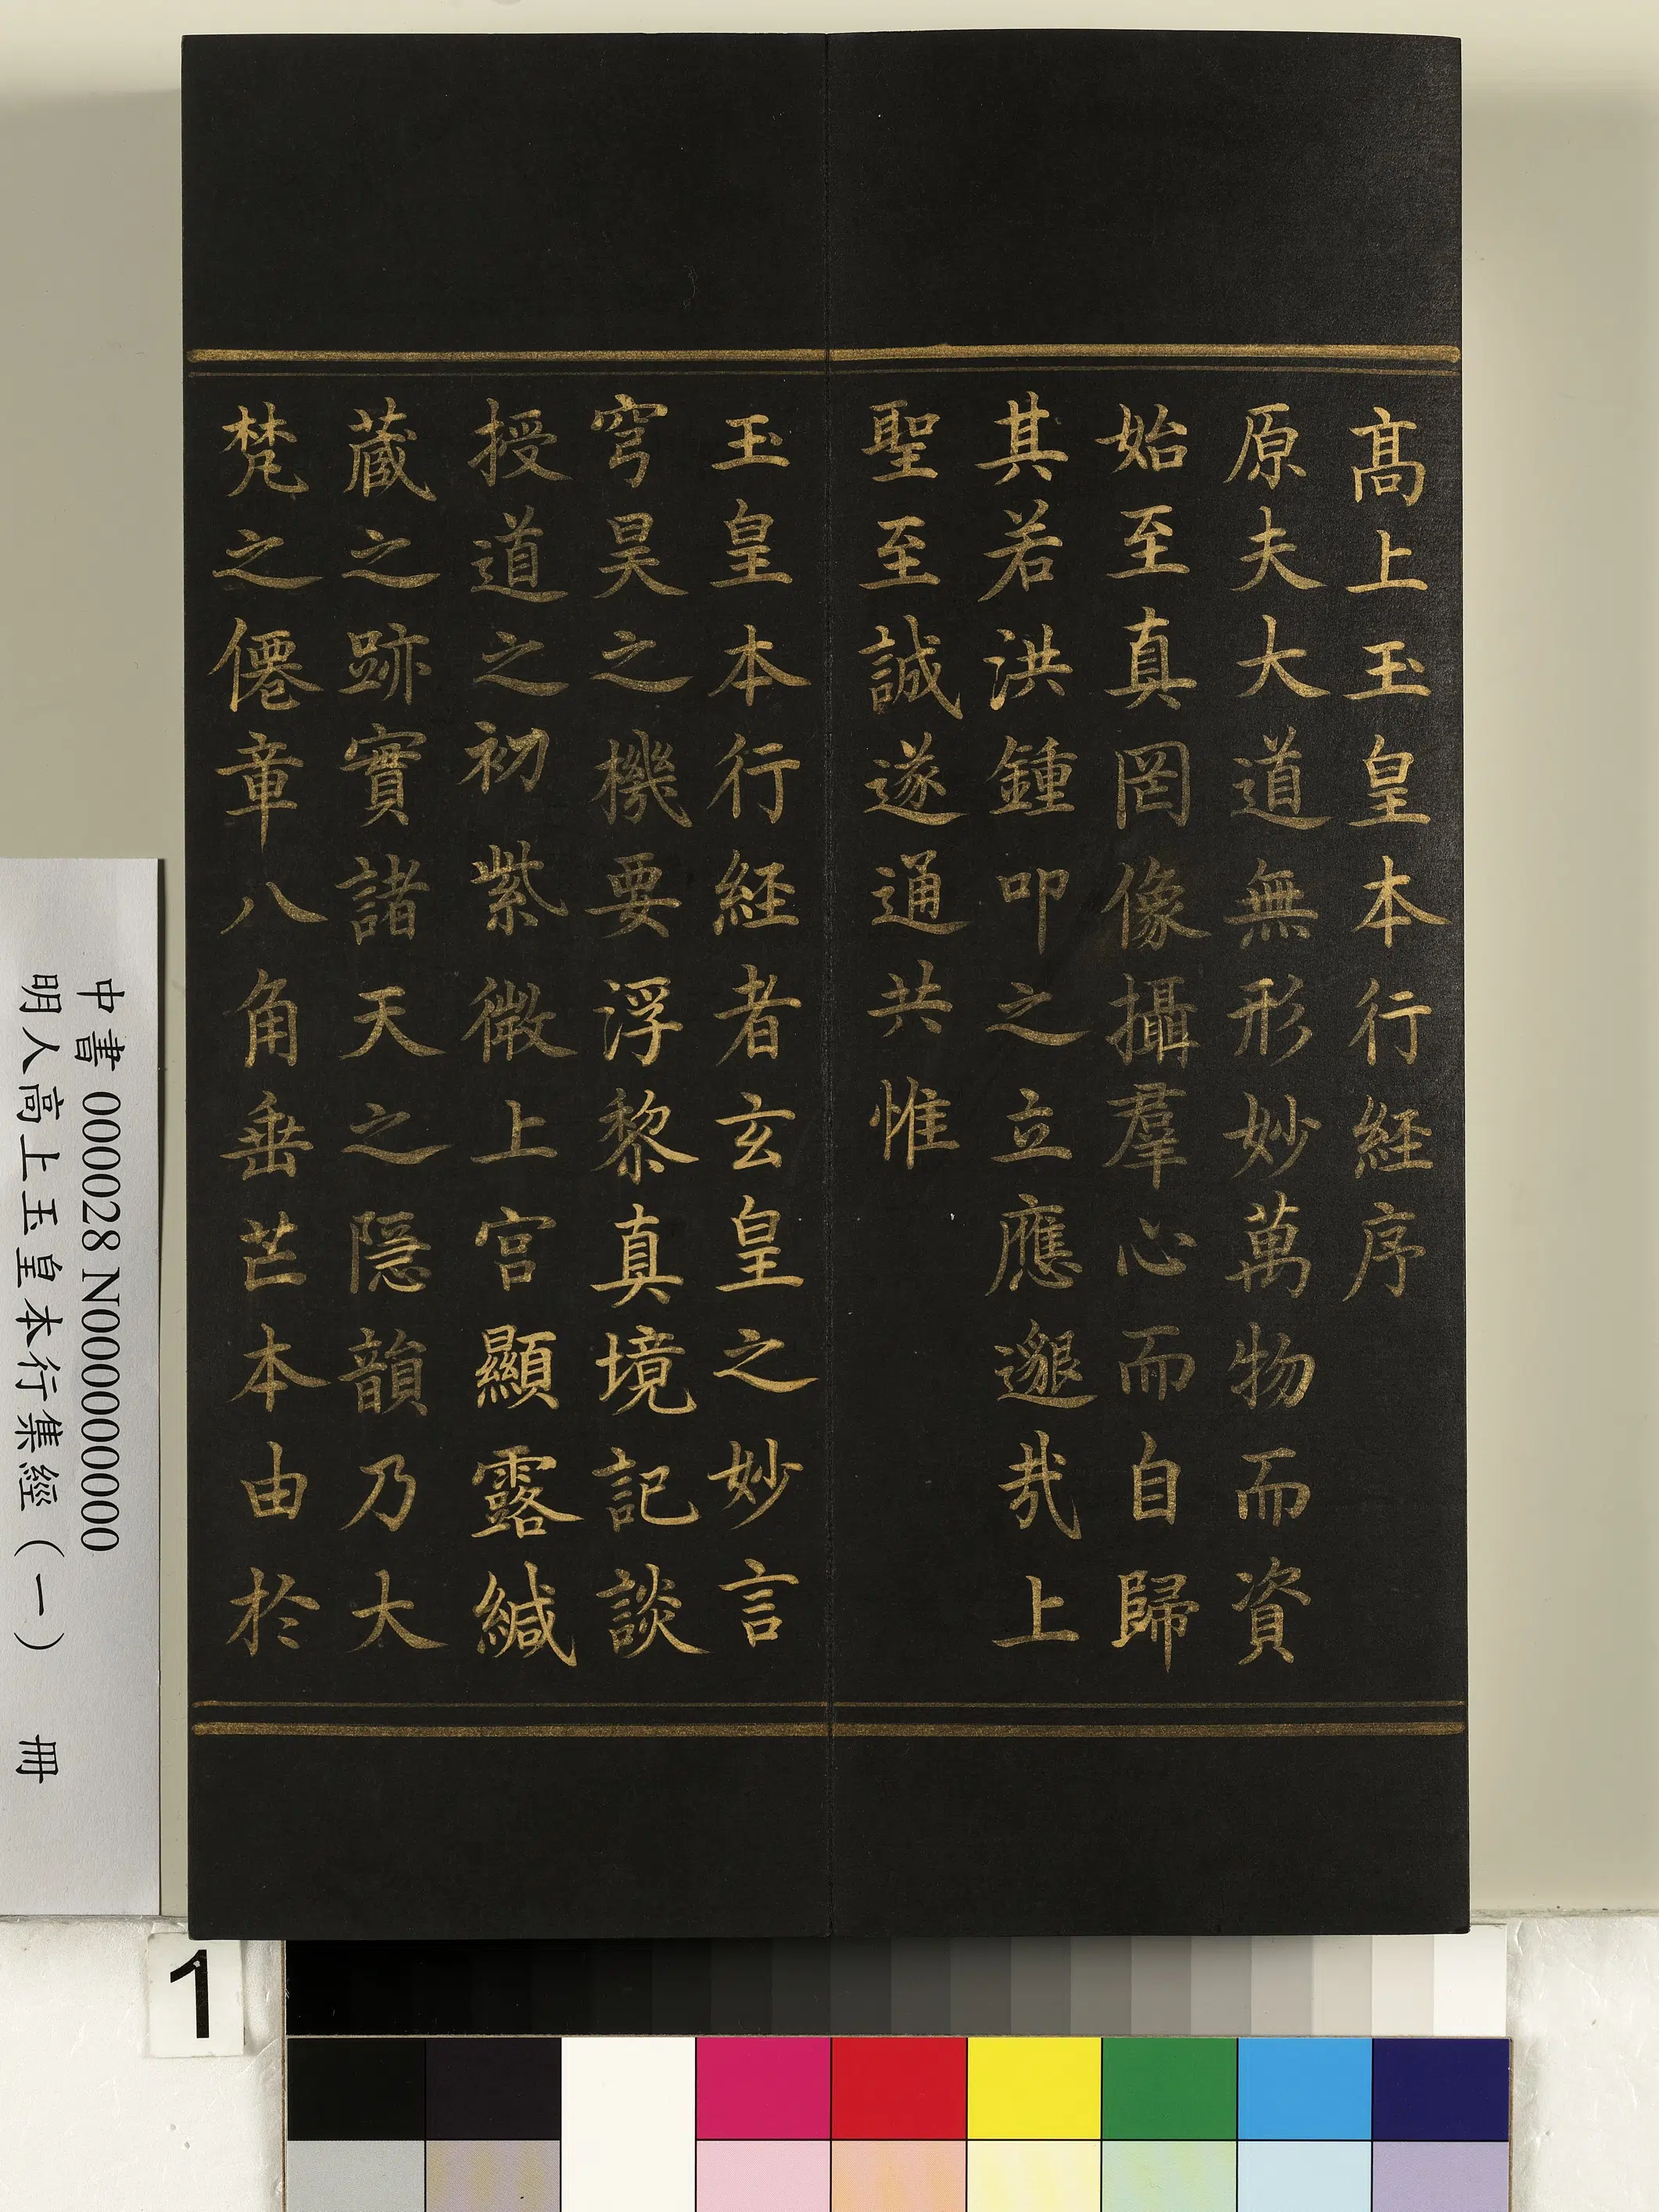 髙上玉皇本行経序
原夫大道無形妙萬物而資
始至真罔像攝羣心而自歸
其若洪鍾叩之立應邈哉上
聖至誠遂通共惟
玉皇本行経者玄皇之妙言
穹昊之機要浮黎真境記談
授道之初紫微上宫顯露緘
蔵之跡實諸天之隠韻乃大
梵之僊章八角垂芒本由於
中書 000028 N000000000
明人高上玉皇本行集經（一） 冊
1